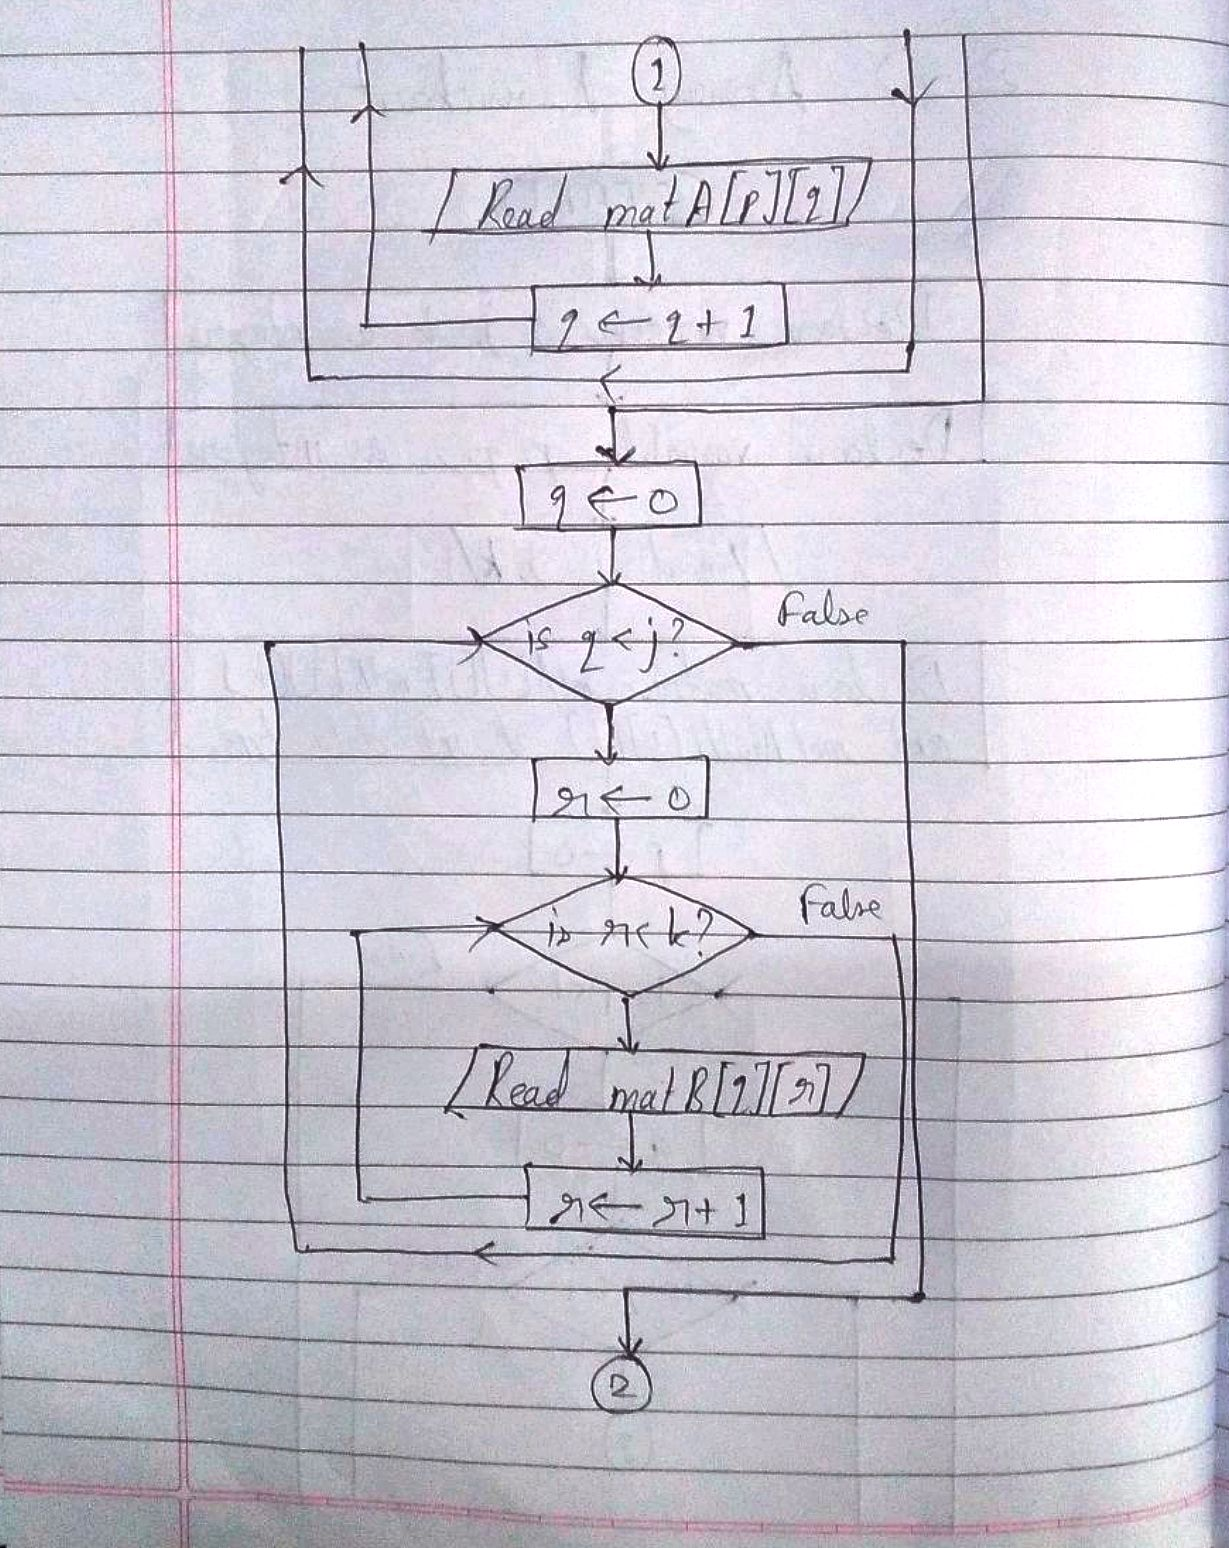 1
Read matA[p][q]
q ← q + 1
q ← 0
is q < j?
False
r ← 0
is r < k?
False
Read matB[q][r]
r ← r + 1
2